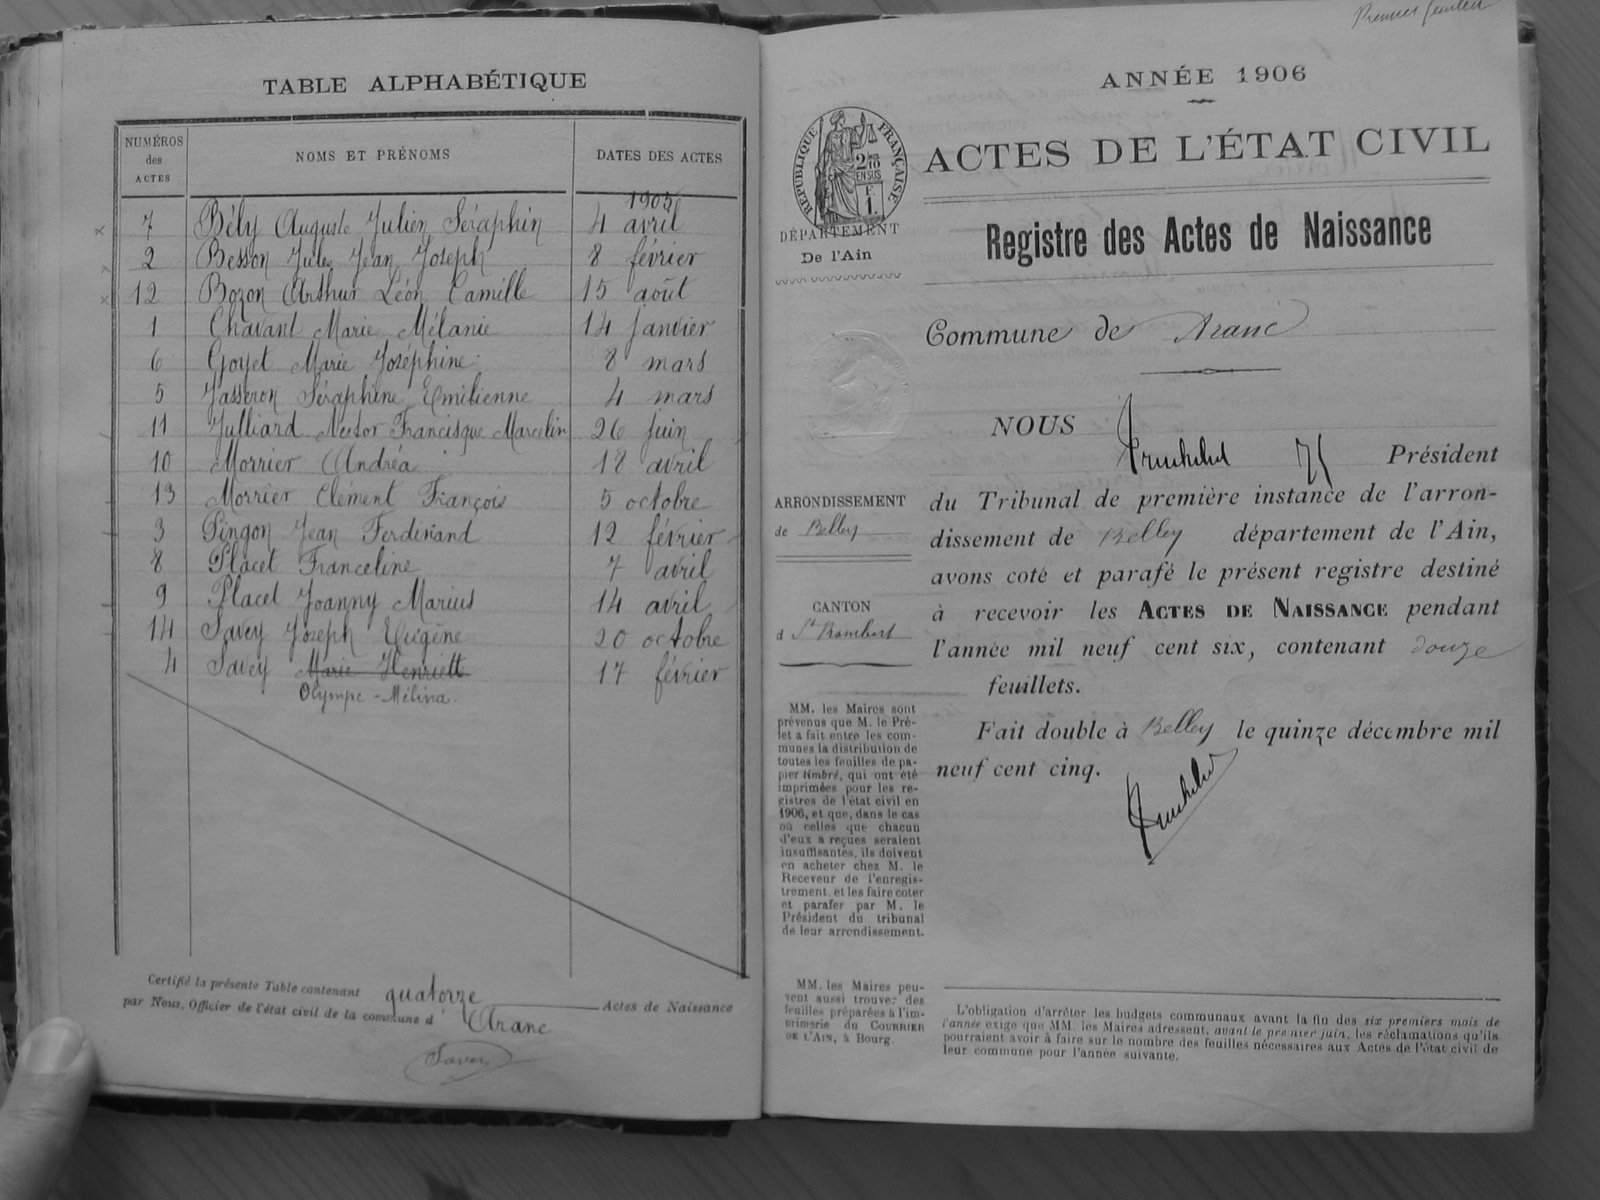 TABLE ALPHABÉTIQUE
NUMÉROS des ACTES NOMS ET PRÉNOMS DATES DES ACTES
1905
7 Bély Auguste Julien Séraphin 4 avril
2 Besson Jules Jean Joseph 8 février
12 Bozon Arthur Léon Camille 15 août
1 Chavant Marie Mélanie 14 janvier
6 Goyet Marie Joséphine 8 mars
5 Jasseron Séraphine Emilienne 4 mars
11 Julliard Nestor Francisque Marcelin 26 juin
10 Morrier Andréa 18 avril
13 Morrier Clément François 5 octobre
3 Pingon Jean Ferdinand 12 février
8 Placet Franceline 7 avril
9 Placet Joanny Marius 14 avril
14 Savey Joseph Eugène 20 octobre
4 Savey Marie Henriett 17 février
Olympe - Mélina.
Certifié la présente Table contenant quatorze Actes de Naissance
par Nous, Officier de l'état civil de la commune d' Aranc
Savey
Premier feuillet
ANNÉE 1906
ACTES DE L'ÉTAT CIVIL
RÉPUBLIQUE FRANÇAISE
2/10 EN SUS
F. 1.
DÉPARTEMENT
De l'Ain
Registre des Actes de Naissance
Commune de Aranc
NOUS
Président
du Tribunal de première instance de l'arron-
dissement de Belley département de l'Ain,
avons coté et parafé le présent registre destiné
à recevoir les ACTES DE NAISSANCE pendant
l'année mil neuf cent six, contenant douze
feuillets.
Fait double à Belley le quinze décembre mil
neuf cent cinq.
ARRONDISSEMENT
de Belley
CANTON
d St Rambert
MM. les Maires sont
prévenus que M. le Pré-
fet a fait entre les com-
munes la distribution de
toutes les feuilles de pa-
pier timbré, qui ont été
imprimées pour les re-
gistres de l'état civil en
1906, et que, dans le cas
où celles que chacun
d'eux a reçues seraient
insuffisantes, ils doivent
en acheter chez M. le
Receveur de l'enregis-
trement, et les faire coter
et parafer par M. le
Président du tribunal
de leur arrondissement.
MM. les Maires peu-
vent aussi trouver des
feuilles préparées à l'im-
primerie du COURRIER
DE L'AIN, à Bourg.
L'obligation d'arrêter les budgets communaux avant la fin des six premiers mois de
l'année exige que MM. les Maires adressent, avant le premier juin, les réclamations qu'ils
pourraient avoir à faire sur le nombre des feuilles nécessaires aux Actes de l'état civil de
leur commune pour l'année suivante.